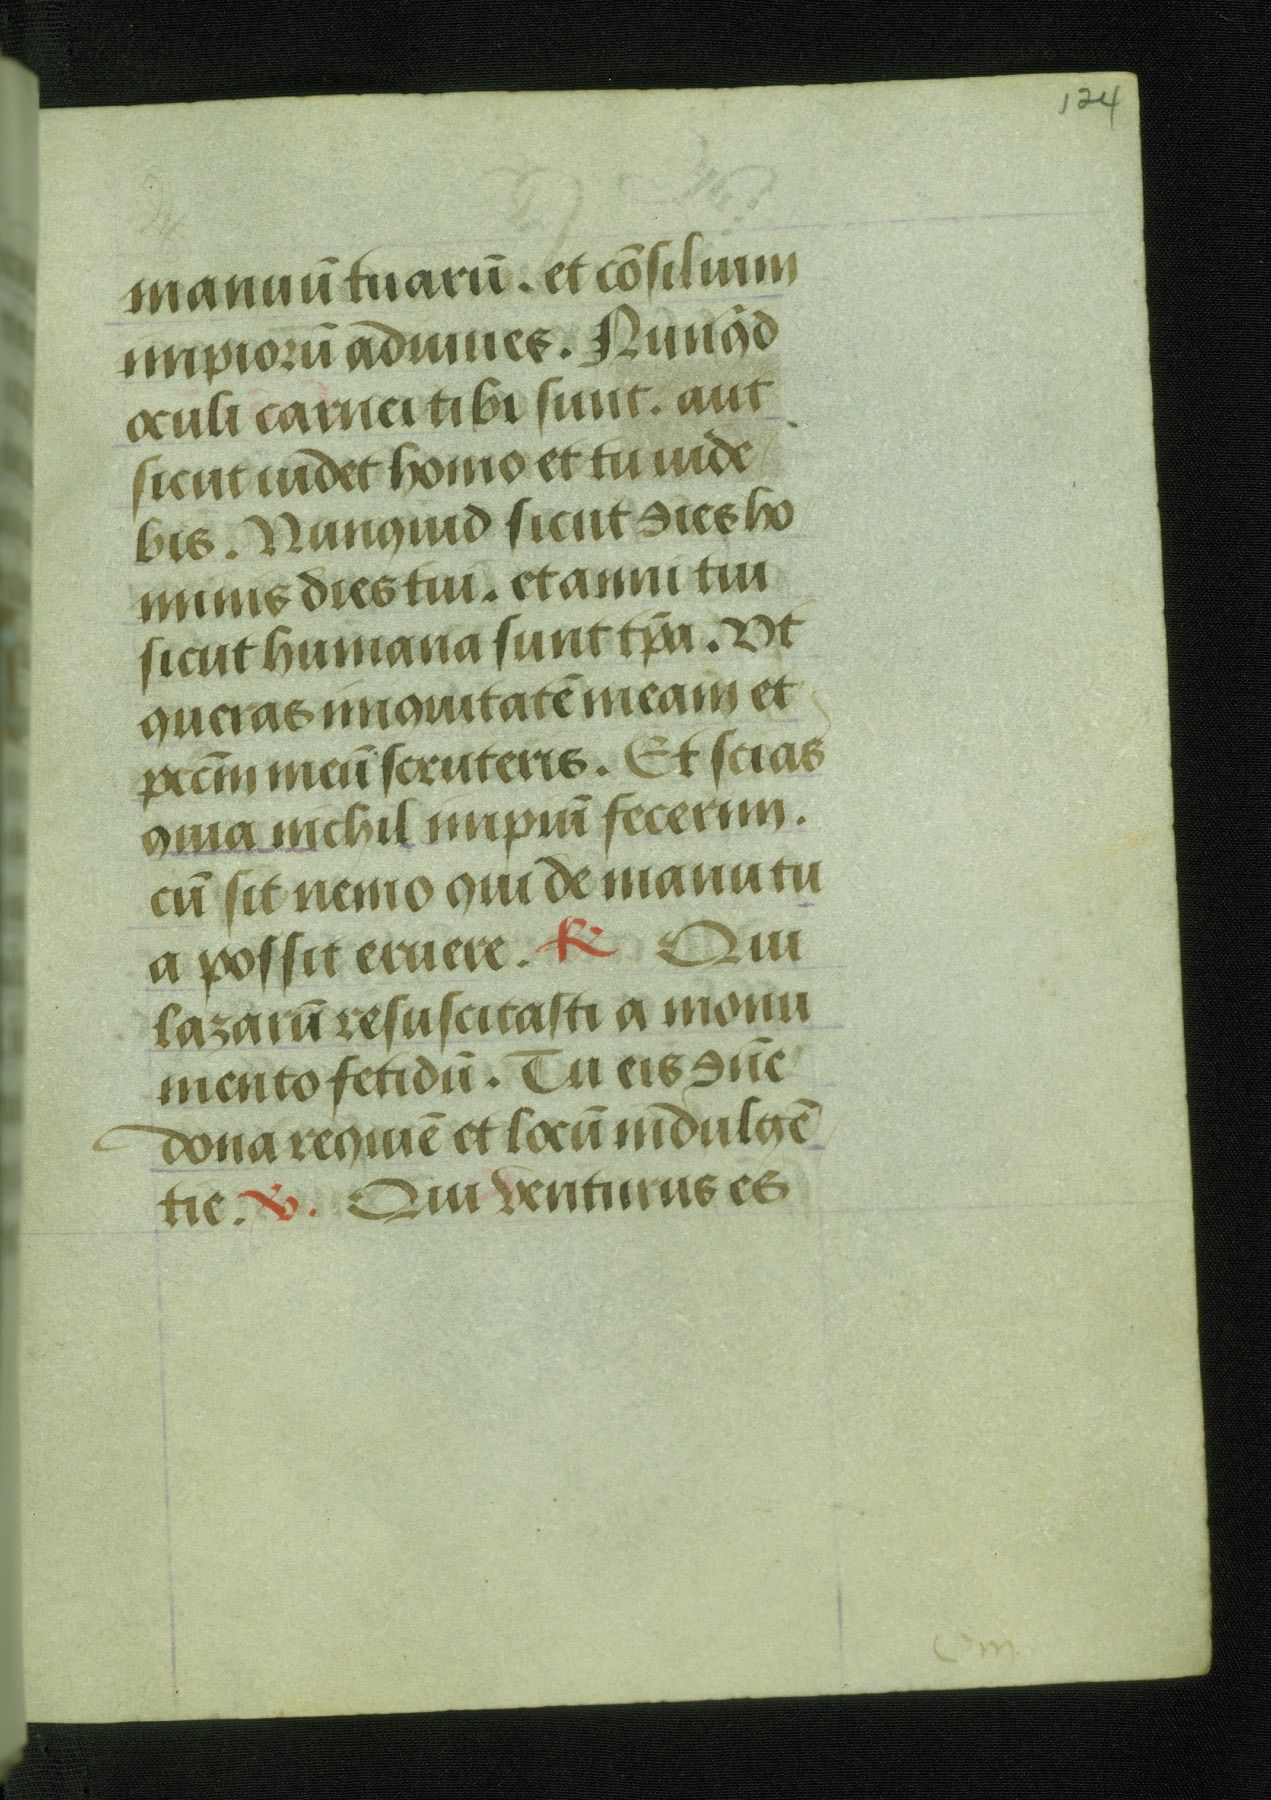 124
manuū tuarū. et cōsilium
impiorū adiuues. Nunq̄d
oculi carnei tibi sunt. aut
sicut uidet homo et tu uide
bis. Nunquid sicut dies ho
minis dies tui. et anni tui
sicut humana sunt tp̄a. Vt
queras iniquitatē meam et
pctm̄ meū scruteris. Et scias
quia nichil impiū fecerim.
cū sit nemo qui de manu tu
a possit eruere. ℟ Qui
lazarū resuscitasti a monu
mento fetidū. Tu eis dn̄e
dona requiē et locū indulgē
tie. ℣. Qui venturus es